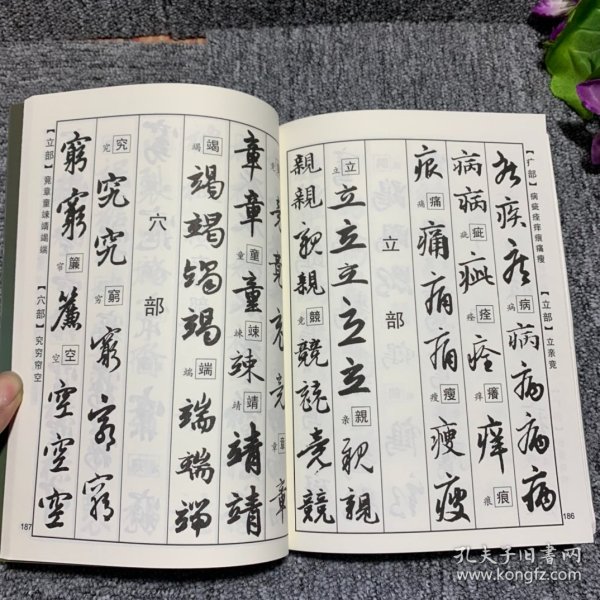 【疒部】病疵痊痒痕痛瘦 【立部】立亲竞
疾疾疾病病病病病病
病病疵疵疵痊痊痊痒癢痒痕痕
痕痛痛痛痛痛瘦瘦瘦瘦
立部
立立立立立立立亲親親親
親親親親竞競競競競競
186
章章章
章章童童童竦竦竦靖靖靖靖
竭竭竭竭竭竭端端端端端
穴部
究究究究穷窮窮窮窮
窮窮帘簾簾空空空空空
【立部】竟章童竦靖竭端 【穴部】究穷帘空
187
孔夫子旧书网
www.kongfz.com